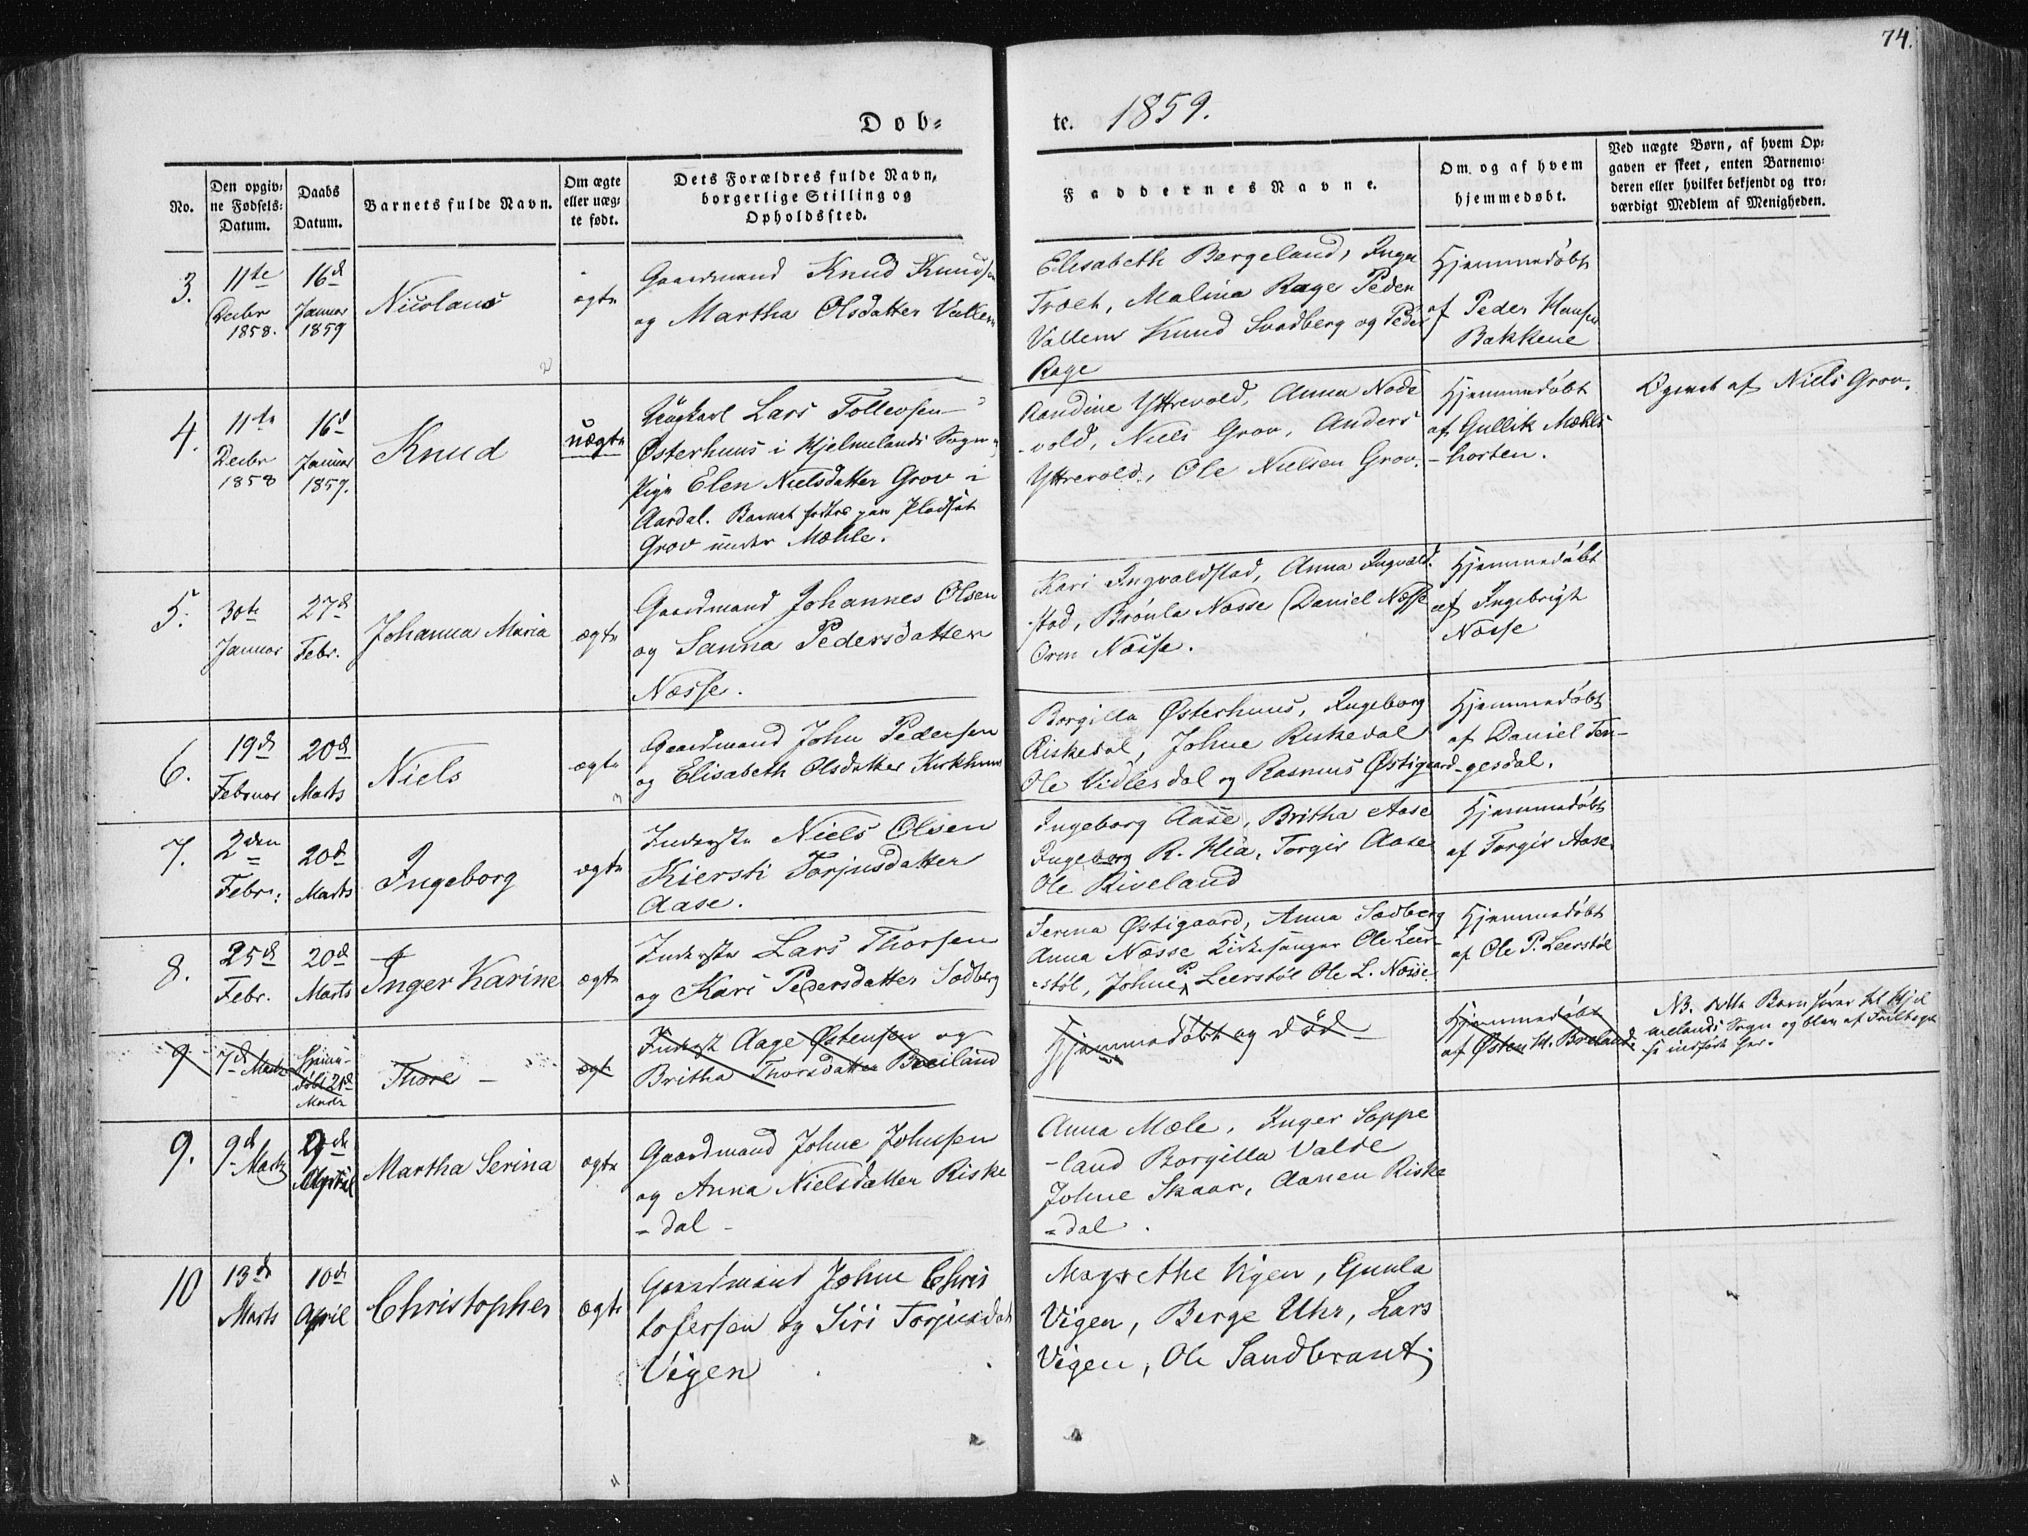 74.
Døb-
te. 1859.
No.
Den opgiv-
ne Fødsels-
Datum.
Daabs
Datum.
Barnets fulde Navn.
Om ægte
eller uæg-
te født.
Dets Forældres fulde Navn,
borgerlige Stilling og
Opholdssted.
Faddernes Navne.
Om og af hvem
hjemmedøbt.
Ved uægte Børn, af hvem Op-
gaven er skeet, enten Barnemo-
deren eller hvilket bekjendt og tro-
værdigt Medlem af Menigheden.
3.
11te
Decbr
1858.
16d
Januar
1859
Nicolaus
ægte
Gaardmand Knud Knudsen
og Martha Olsdatter
Elisabeth Bergeland, Inger
Malina Rage Peder
Knud Svadberg og Peder
Rage
Hjemmedøbt
af Peder Hansen
Bakkene
4.
11te
Decbr
1858
16d
Januar
1859.
Knud
uægte
Ungkarl Lars Tollevsen
Østerhuus i Hjelmelands Sogn og
Pige Elen Nielsdatter Grov i
Aardal. Barnet fødtes paa Pladset
Grov under Mæhle.
Aandine Yttrevold, Anna Nede
-vold, Niels Grov, Anders
Yttrevold, Ole Nielsen Grov.
Hjemmedøbt
af Gullik Mæhle-
-horten.
Opgivet af Niels Grov.
5.
30te
Januar
27d
Febr.
Johanna Maria
ægte
Gaardmand Johannes Olsen
og Sanna Pedersdatter
Næsse.
Kari Ingvaldstad, Anna Ingvald-
stad, Brønla Næsse, Daniel Næsse
Orm Næsse.
Hjemmedøbt
af Ingebrigt
Næsse
6.
19d
Februar
20d
Marts
Niels
ægte
Gaardmand John Pedersen
og Elisabeth Olsdatter Kirkhuus
Borgilla Østerhuus, Ingeborg
Riskedal, Johne Riskedal
Ole Vidlesdal og Rasmus Østigaard
Hjemmedøbt
af Daniel Ten-
-gesdal.
7.
2den
Febr:
20d
Marts
Ingeborg
ægte
Inderste Niels Olsen
Kiersti Torjusdatter
Aase.
Ingeborg Aase, Britha Aase
Ingeborg R. Hia, Torgir Aase
Ole Riveland
Hjemmedøbt
af Torgir Aase
8.
25d
Febr.
20d
Marts
Inger Karine
ægte
Inderste Lars Thorsen
og Kari Pedersdatter Sadberg
Serina Østigaard, Anna Sadberg
Anna Næsse Kirkesanger Ole Leer-
-støl, Johne P. Leerstøl Ole L. Næsse
Hjemmedøbt
af Ole P. Leerstøl
9
7d Marts
21d
Marts
Thore -
ægte
Inderst Aage Østensen og
Britha Thorsdatter Breiland
Hjemmedøbt og død
Hjemmedøbt
af Østen H. Breland.
NB. dette Barn hører til Hjel
melands Sogn og blev af Feiltagel
se indført her.
9.
9d
Marts
9de
April
Martha Serina
ægte
Gaardmand Johne Johnsen
og Anna Nielsdatter Riske
-dal -
Anna Mæle, Inger Soppe
-land Borgilla Valde
Johne Skaar, Aamen Riske
-dal.
10
13de
Marts
10de
April
Christopher
ægte
Gaardmand Johne Chris
tofersen og Siri Torjusdatt
Vigen
Magrethe Vigen, Gunla
Vigen, Berge Uhr, Lars
Vigen, Ole Sandbrant.